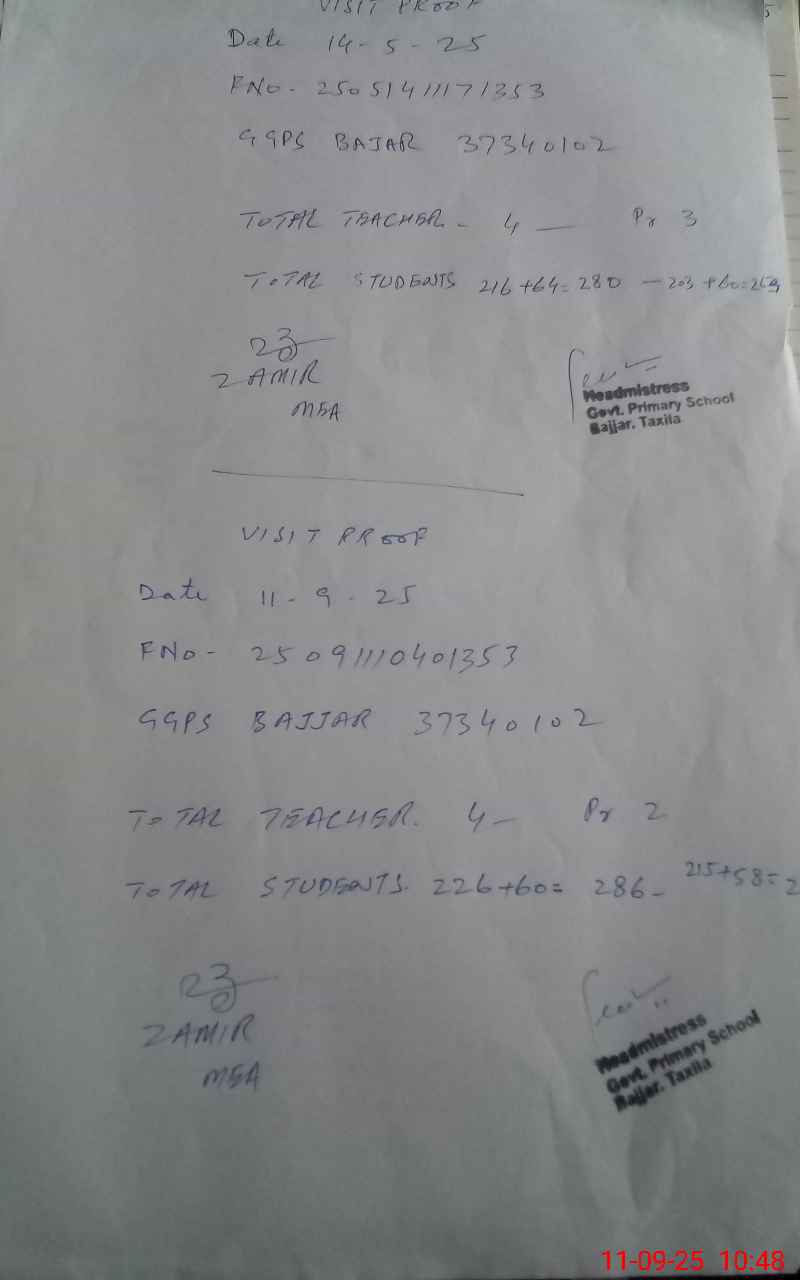 VISIT PROOF
Date 14-5-25
FNo- 2505141171353
GGPS BAJAR 37340102
TOTAL TEACHER - 4 — Pr 3
TOTAL STUDENTS 216+64=280 — 203+60=269
ZAMIR
MEA
Headmistress
Govt. Primary School
Bajjar, Taxila
VISIT PROOF
Date 11-9-25
FNo- 25091110401353
GGPS BAJJAR 37340102
TOTAL TEACHER. 4 — Pr 2
TOTAL STUDENTS. 226+60= 286- 215+58=2
ZAMIR
MEA
Headmistress
Govt. Primary School
Bajjar, Taxila
11-09-25 10:48